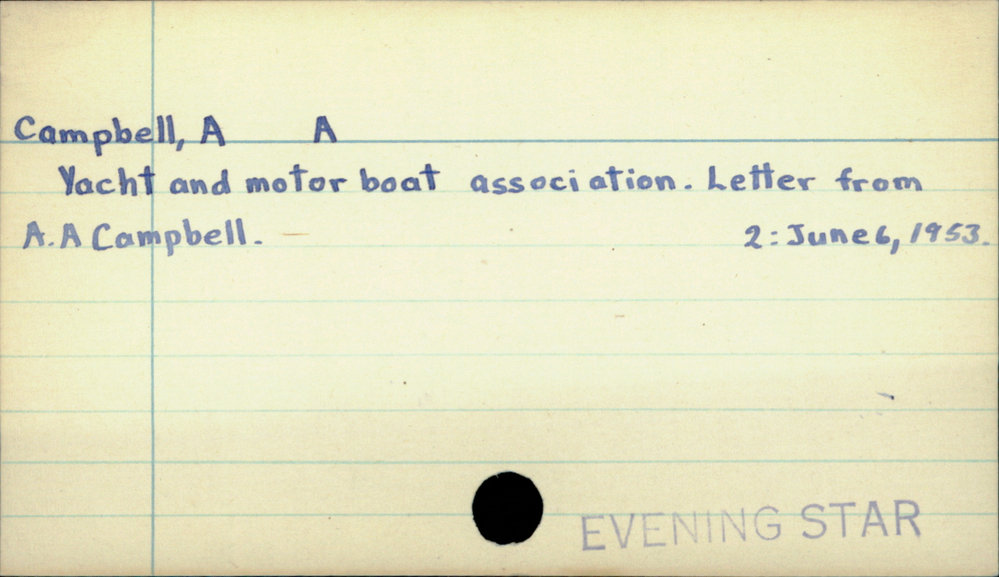 Campbell, A A
Yacht and motor boat association. Letter from
A. A Campbell. 2: June 6, 1953.
EVENING STAR